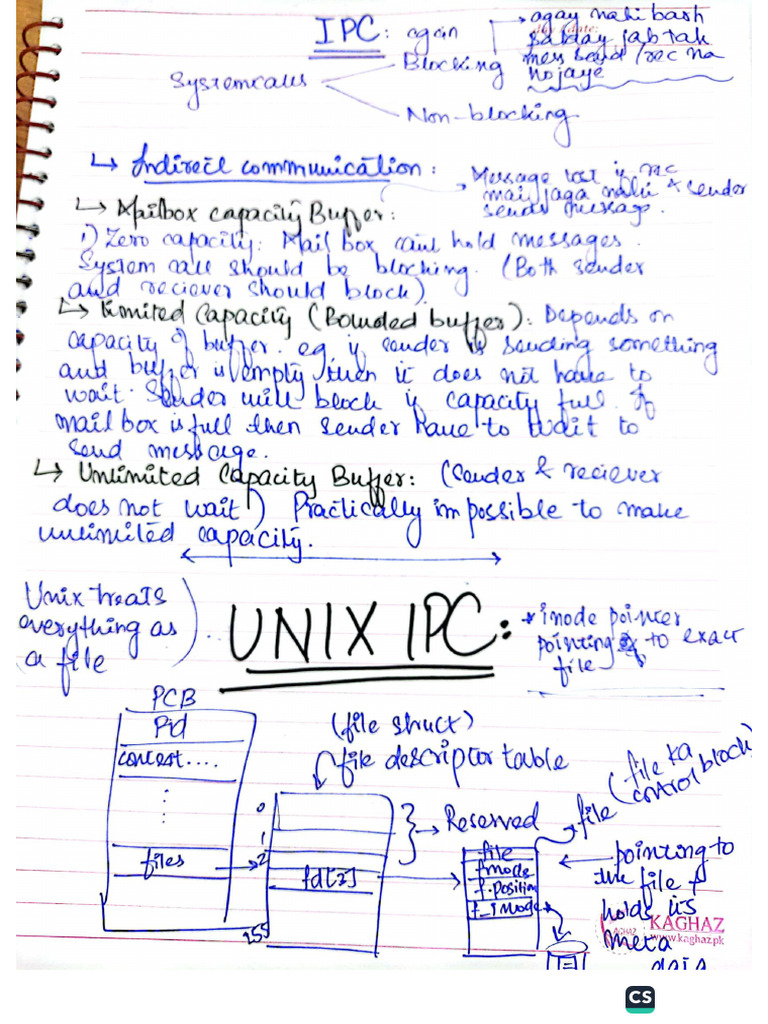 IPC: again
Systemcalls
Blocking
agay nahi bash
sakday jab tak
mess send / rec na
hojaye
Non-blocking
↳ Indirect communication:
Message lost if rec
mai jaga nahi & sender
sends message.
↳ Mailbox capacity Buffer:
1) Zero capacity: Mail box can't hold messages.
System call should be blocking. (Both sender
and reciever should block).
↳ Limited Capacity (Bounded buffer): Depends on
capacity of buffer. eg if sender is sending something
and buffer is empty then it does not have to
wait. Sender will block if capacity full. If
mail box is full then sender have to wait to
send message.
↳ Unlimited Capacity Buffer: (Sender & reciever
does not wait) Practically impossible to make
unlimited capacity.
Unix treats
everything as
a file
UNIX IPC:
* inode pointer
pointing to exact
file
PCB
Pid
context....
files
(file struct)
file descriptor table
0
1
2
255
fd[3]
Reserved
file
fmode
f.position
f_inode
file (file ka
control block)
pointing to
the file &
holds its
meta
data
KAGHAZ
www.kaghaz.pk
CS